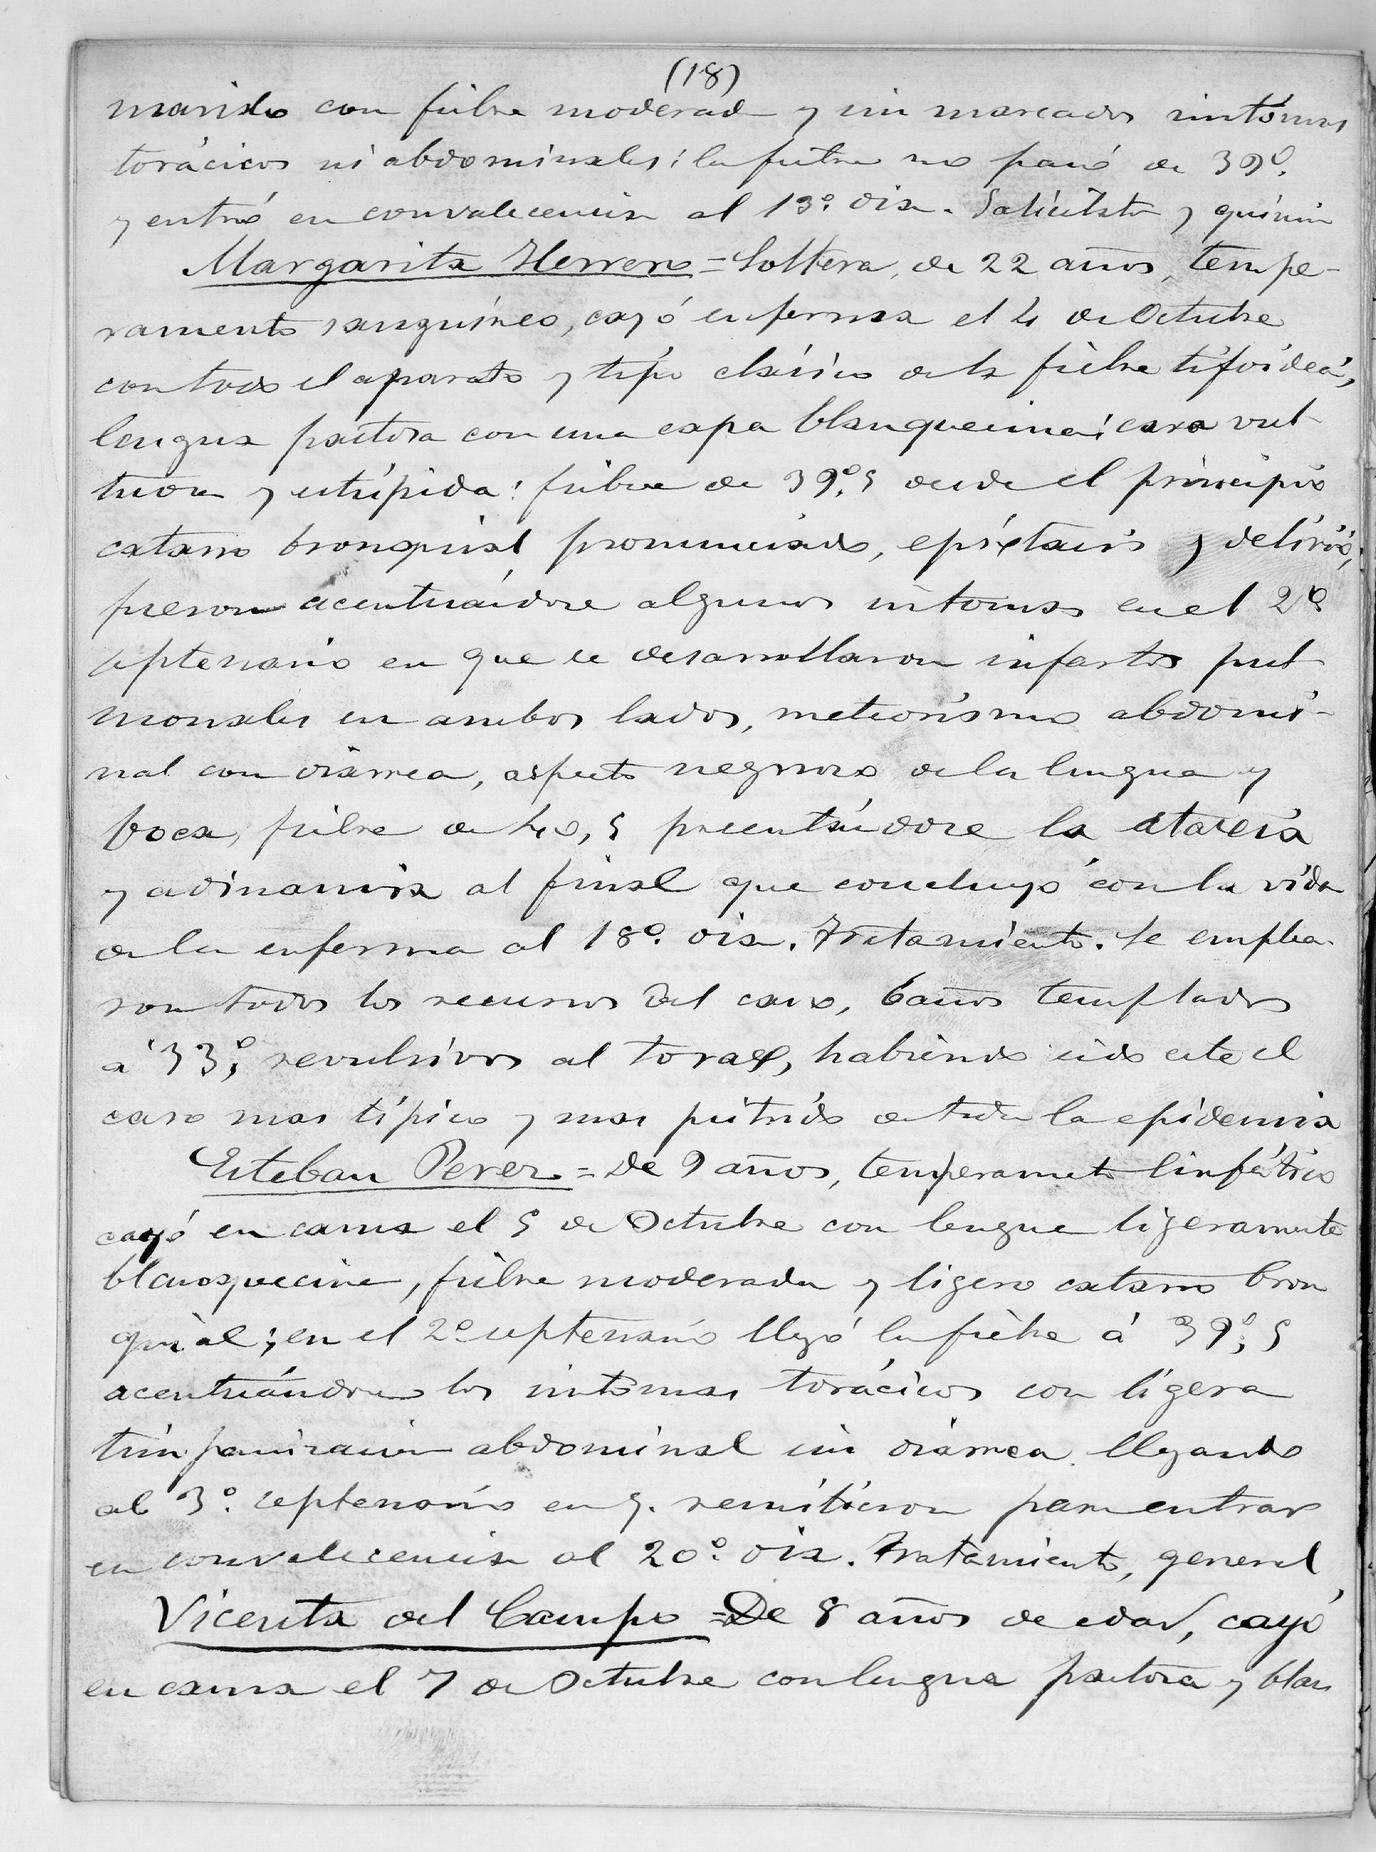 (18)
marido con fiebre moderada y sin marcados sintómas
torácicos ni abdominales: la fiebre no pasó de 39º.
y entró en convalecencia al 13º. dia. Salicilato y quinina
Margarita Herrero = Soltera, de 22 años, tempe-
ramento sanguíneo, cayó enferma el 4 de Octubre
con todo el aparato y tipo clásico de la fiebre tifoidea,
lengua pastosa con una capa blanquecina: cara vul-
tuosa y estúpida: fiebre de 39º,5 desde el principio
catarro bronquial pronunciado, epíxtasis y delirio,
fueron acentuándose algunos sintomas en el 2º
septenario en que se desarrollaron infartos pul-
monales en ambos lados, meteorismo abdomi-
nal con diarrea, aspecto negruzco de la lengua y
boca, fiebre de 40,5 presentándose la ataxia
y adinamia al final que concluyó con la vida
de la enferma al 18º. dia. Tratamiento. Se emplea-
ron todos los recursos del caso, baños templados
á 33º, revulsivos al torax, habiendo sido este el
caso mas típico y mas pútrido de toda la epidemia
Esteban Perez = De 9 años, temperamento linfático
cayó en cama el 5 de Octubre con lengua ligeramente
blanquecina, fiebre moderada y ligero catarro bron
quial; en el 2º septenario llegó la fiebre á 39º,5
acentuándose los sintomas torácicos con ligera
timpanizacion abdominal sin diarrea llegando
al 3º. septenario en q. remitieron para entrar
en convalecencia al 20º. dia. Tratamiento, general,
Vicenta del Campo = De 8 años de edad, cayó
en cama el 7 de Octubre con lengua pastosa y blan